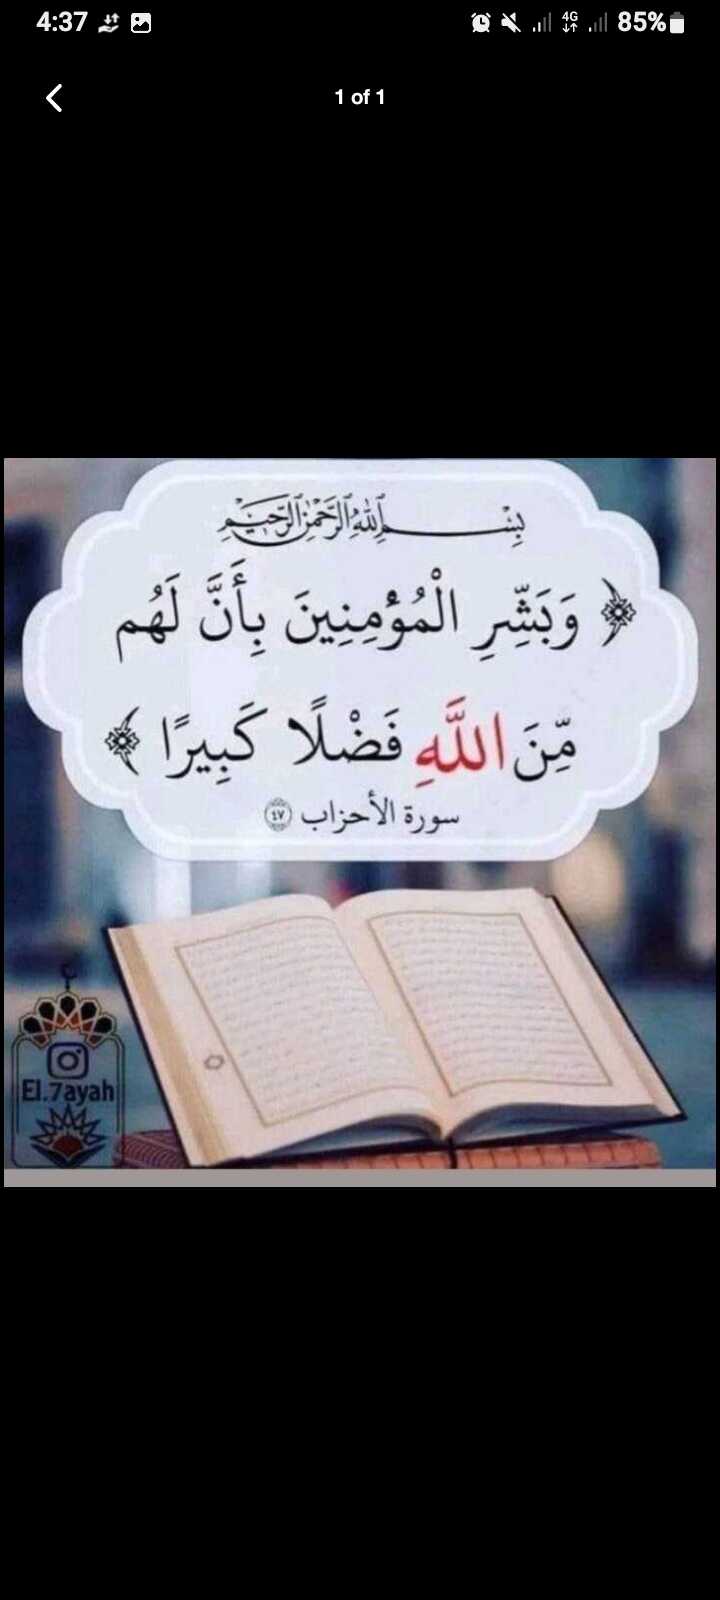 4:37
4G
85%
1 of 1
بِسْمِ ٱللَّهِ ٱلرَّحْمَٰنِ ٱلرَّحِيمِ
﴿ وَبَشِّرِ الْمُؤْمِنِينَ بِأَنَّ لَهُم
مِّنَ اللَّهِ فَضْلًا كَبِيرًا ﴾
سورة الأحزاب ٤٧
El.7ayah